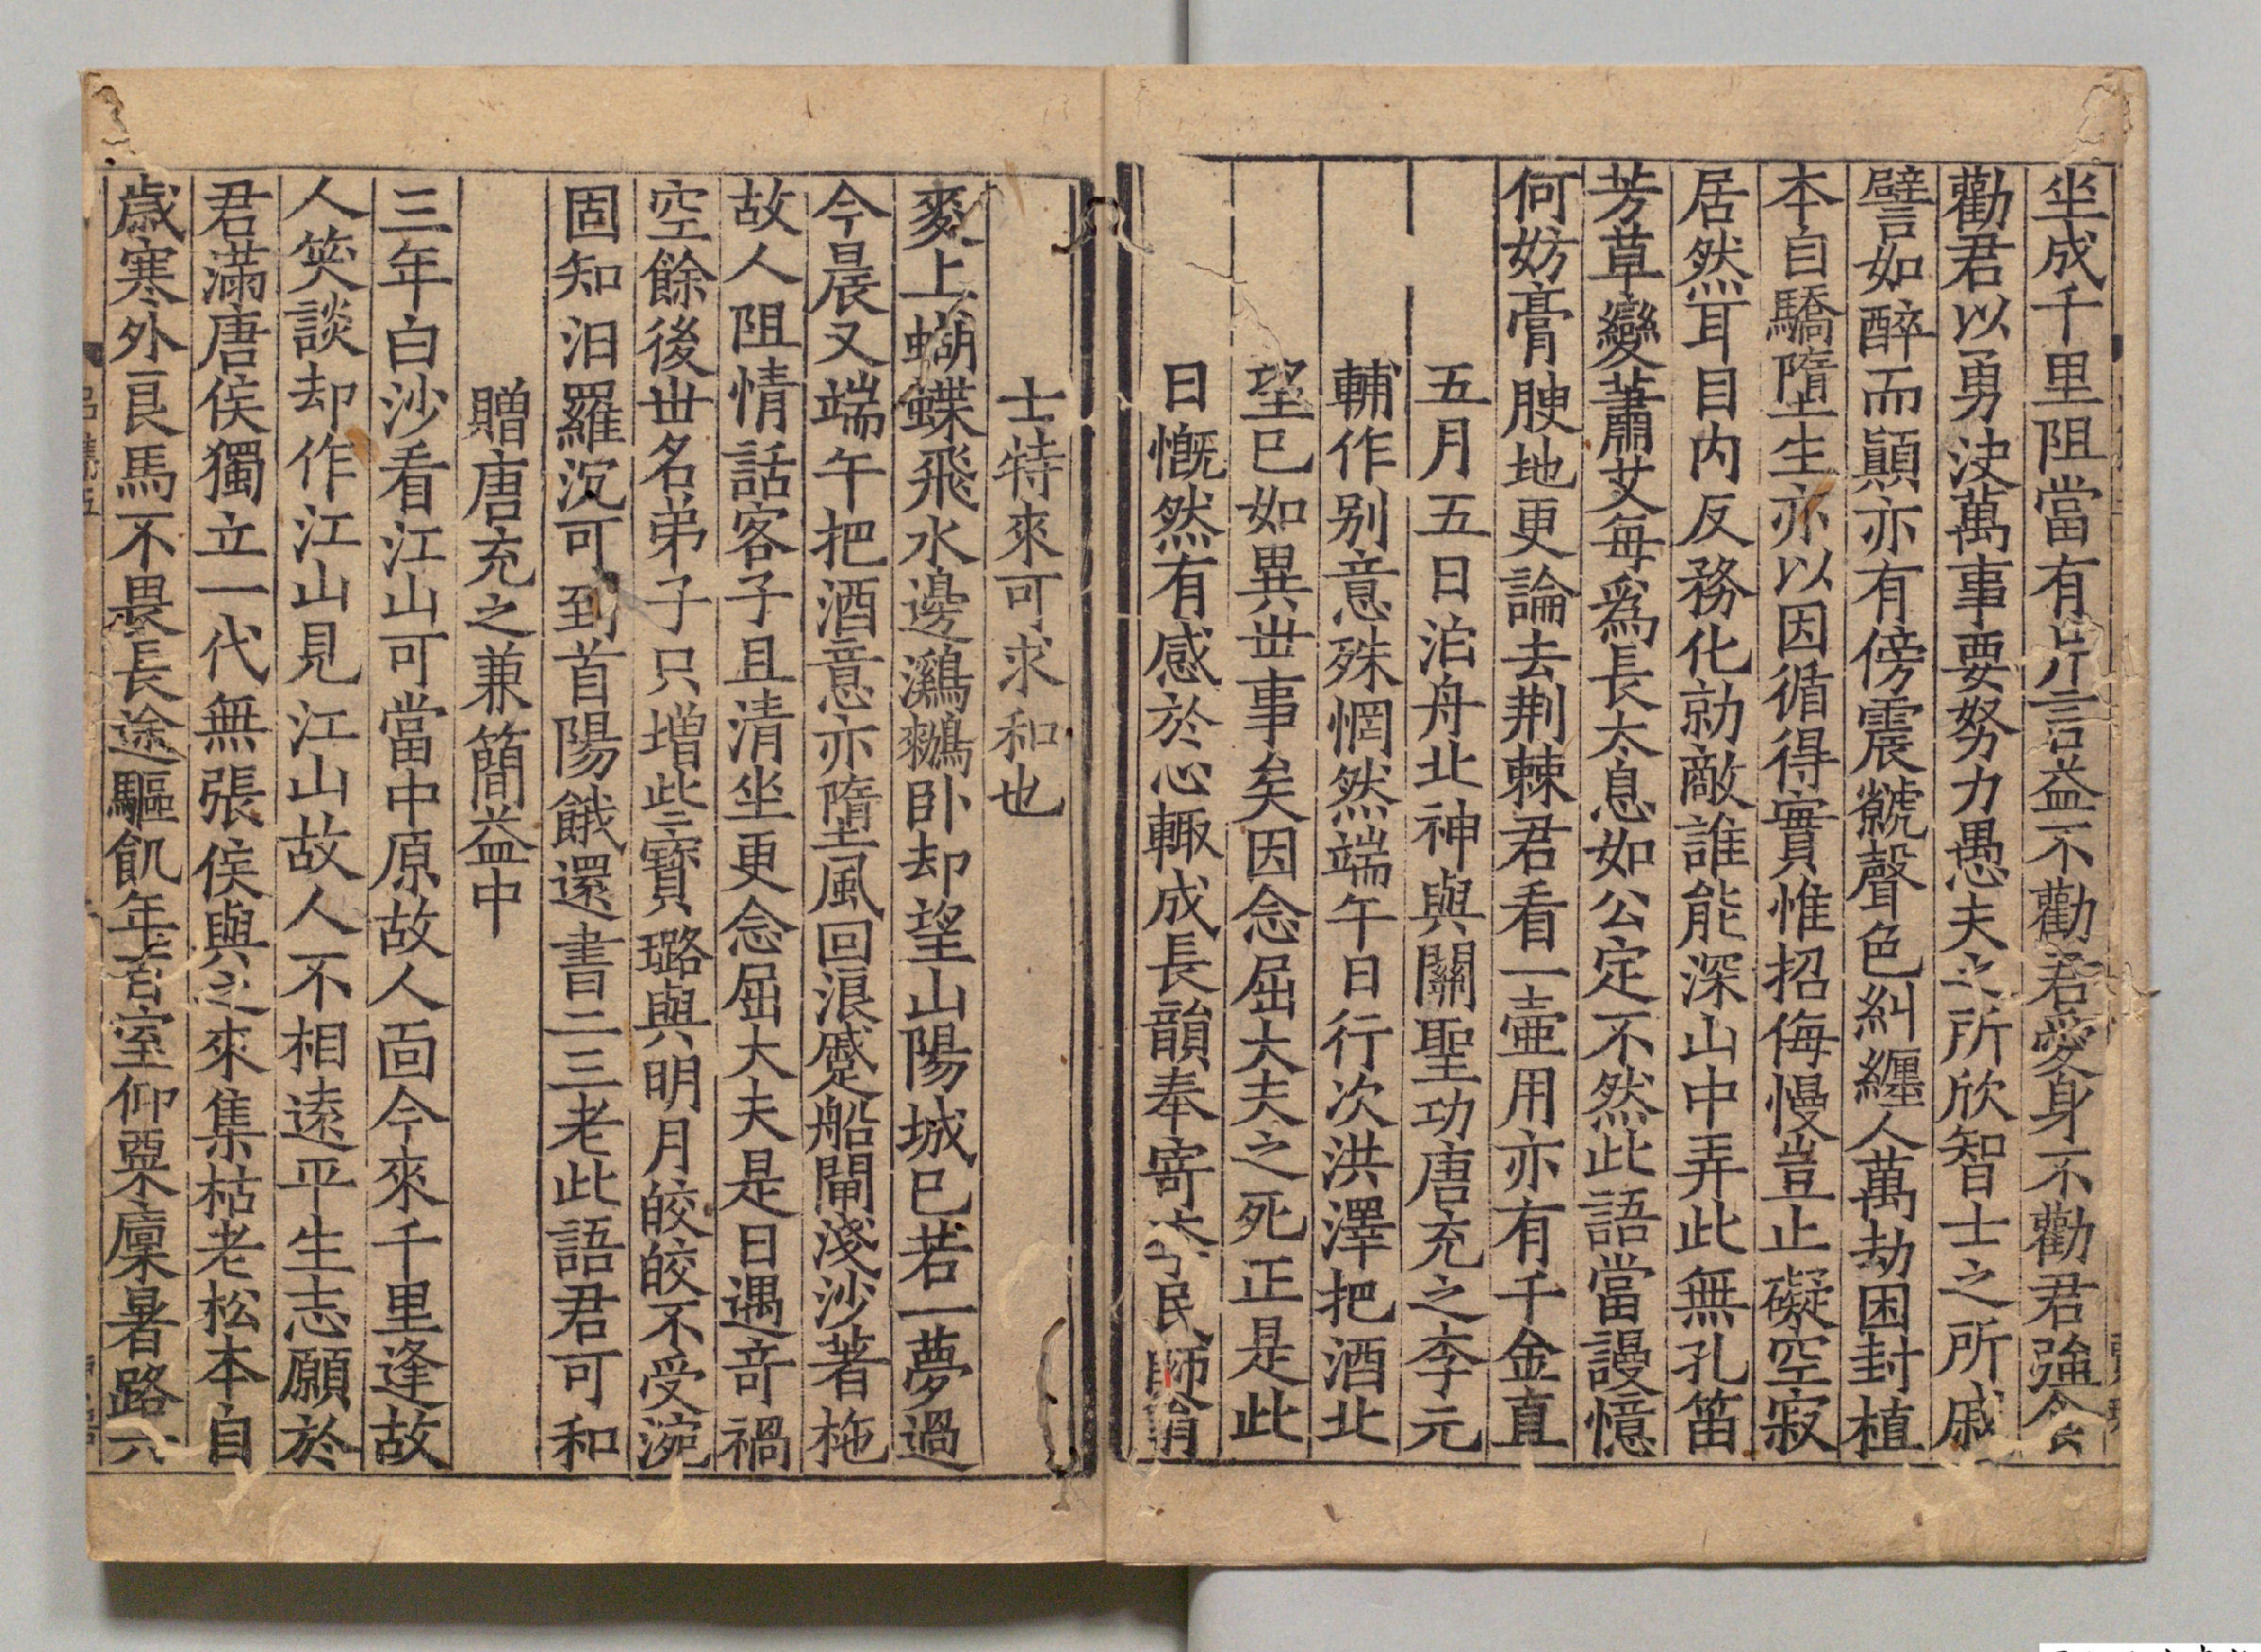 坐成千里阻當有片言益不勸君愛身不勸君強食
勸君以勇決萬事要努力愚夫之所欣智士之所戚
譬如醉而顛亦有傍震虩聲色糾纏人萬劫困封植
本自驕墮生亦以因循得實惟招侮慢豈止礙空寂
居然耳目内反務化勍敵誰能深山中弄此無孔笛
芳草變蕭艾每爲長太息如公定不然此語當謾憶
何妨膏腴地更論去荆棘君看一壺用亦有千金直
五月五日泊舟北神與關聖功唐充之李元
輔作别意殊惘然端午日行次洪澤把酒北
望已如異丗事矣因念屈大夫之死正是此
日慨然有感於心輙成長韻奉寄
士特來可求和也
麥上蝴蝶飛水邊鸂鶒卧却望山陽城已若一夢過
今晨又端午把酒意亦墮風回浪蹙船閘淺沙著柂
故人阻情話客子且清坐更念屈大夫是日遇竒禍
空餘後丗名弟子只增些寶璐與明月皎皎不受涴
固知汨羅沉可到首陽餓還書二三老此語君可和
贈唐充之兼簡益中
三年白沙看江山可當中原故人面今來千里逢故
人笑談却作江山見江山故人不相遠平生志願於
君滿唐侯獨立一代無張侯與之來集枯老松本自
歳寒外良馬不畏長途驅飢年室仰粟廩暑路